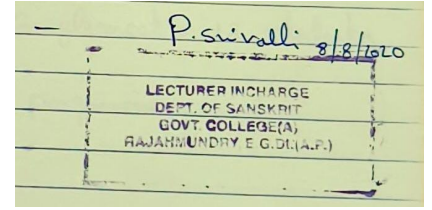 P. Srivalli 8/8/2020
LECTURER INCHARGE
DEPT. OF SANSKRIT
GOVT. COLLEGE(A)
RAJAHMUNDRY E G.Dt.(A.P.)